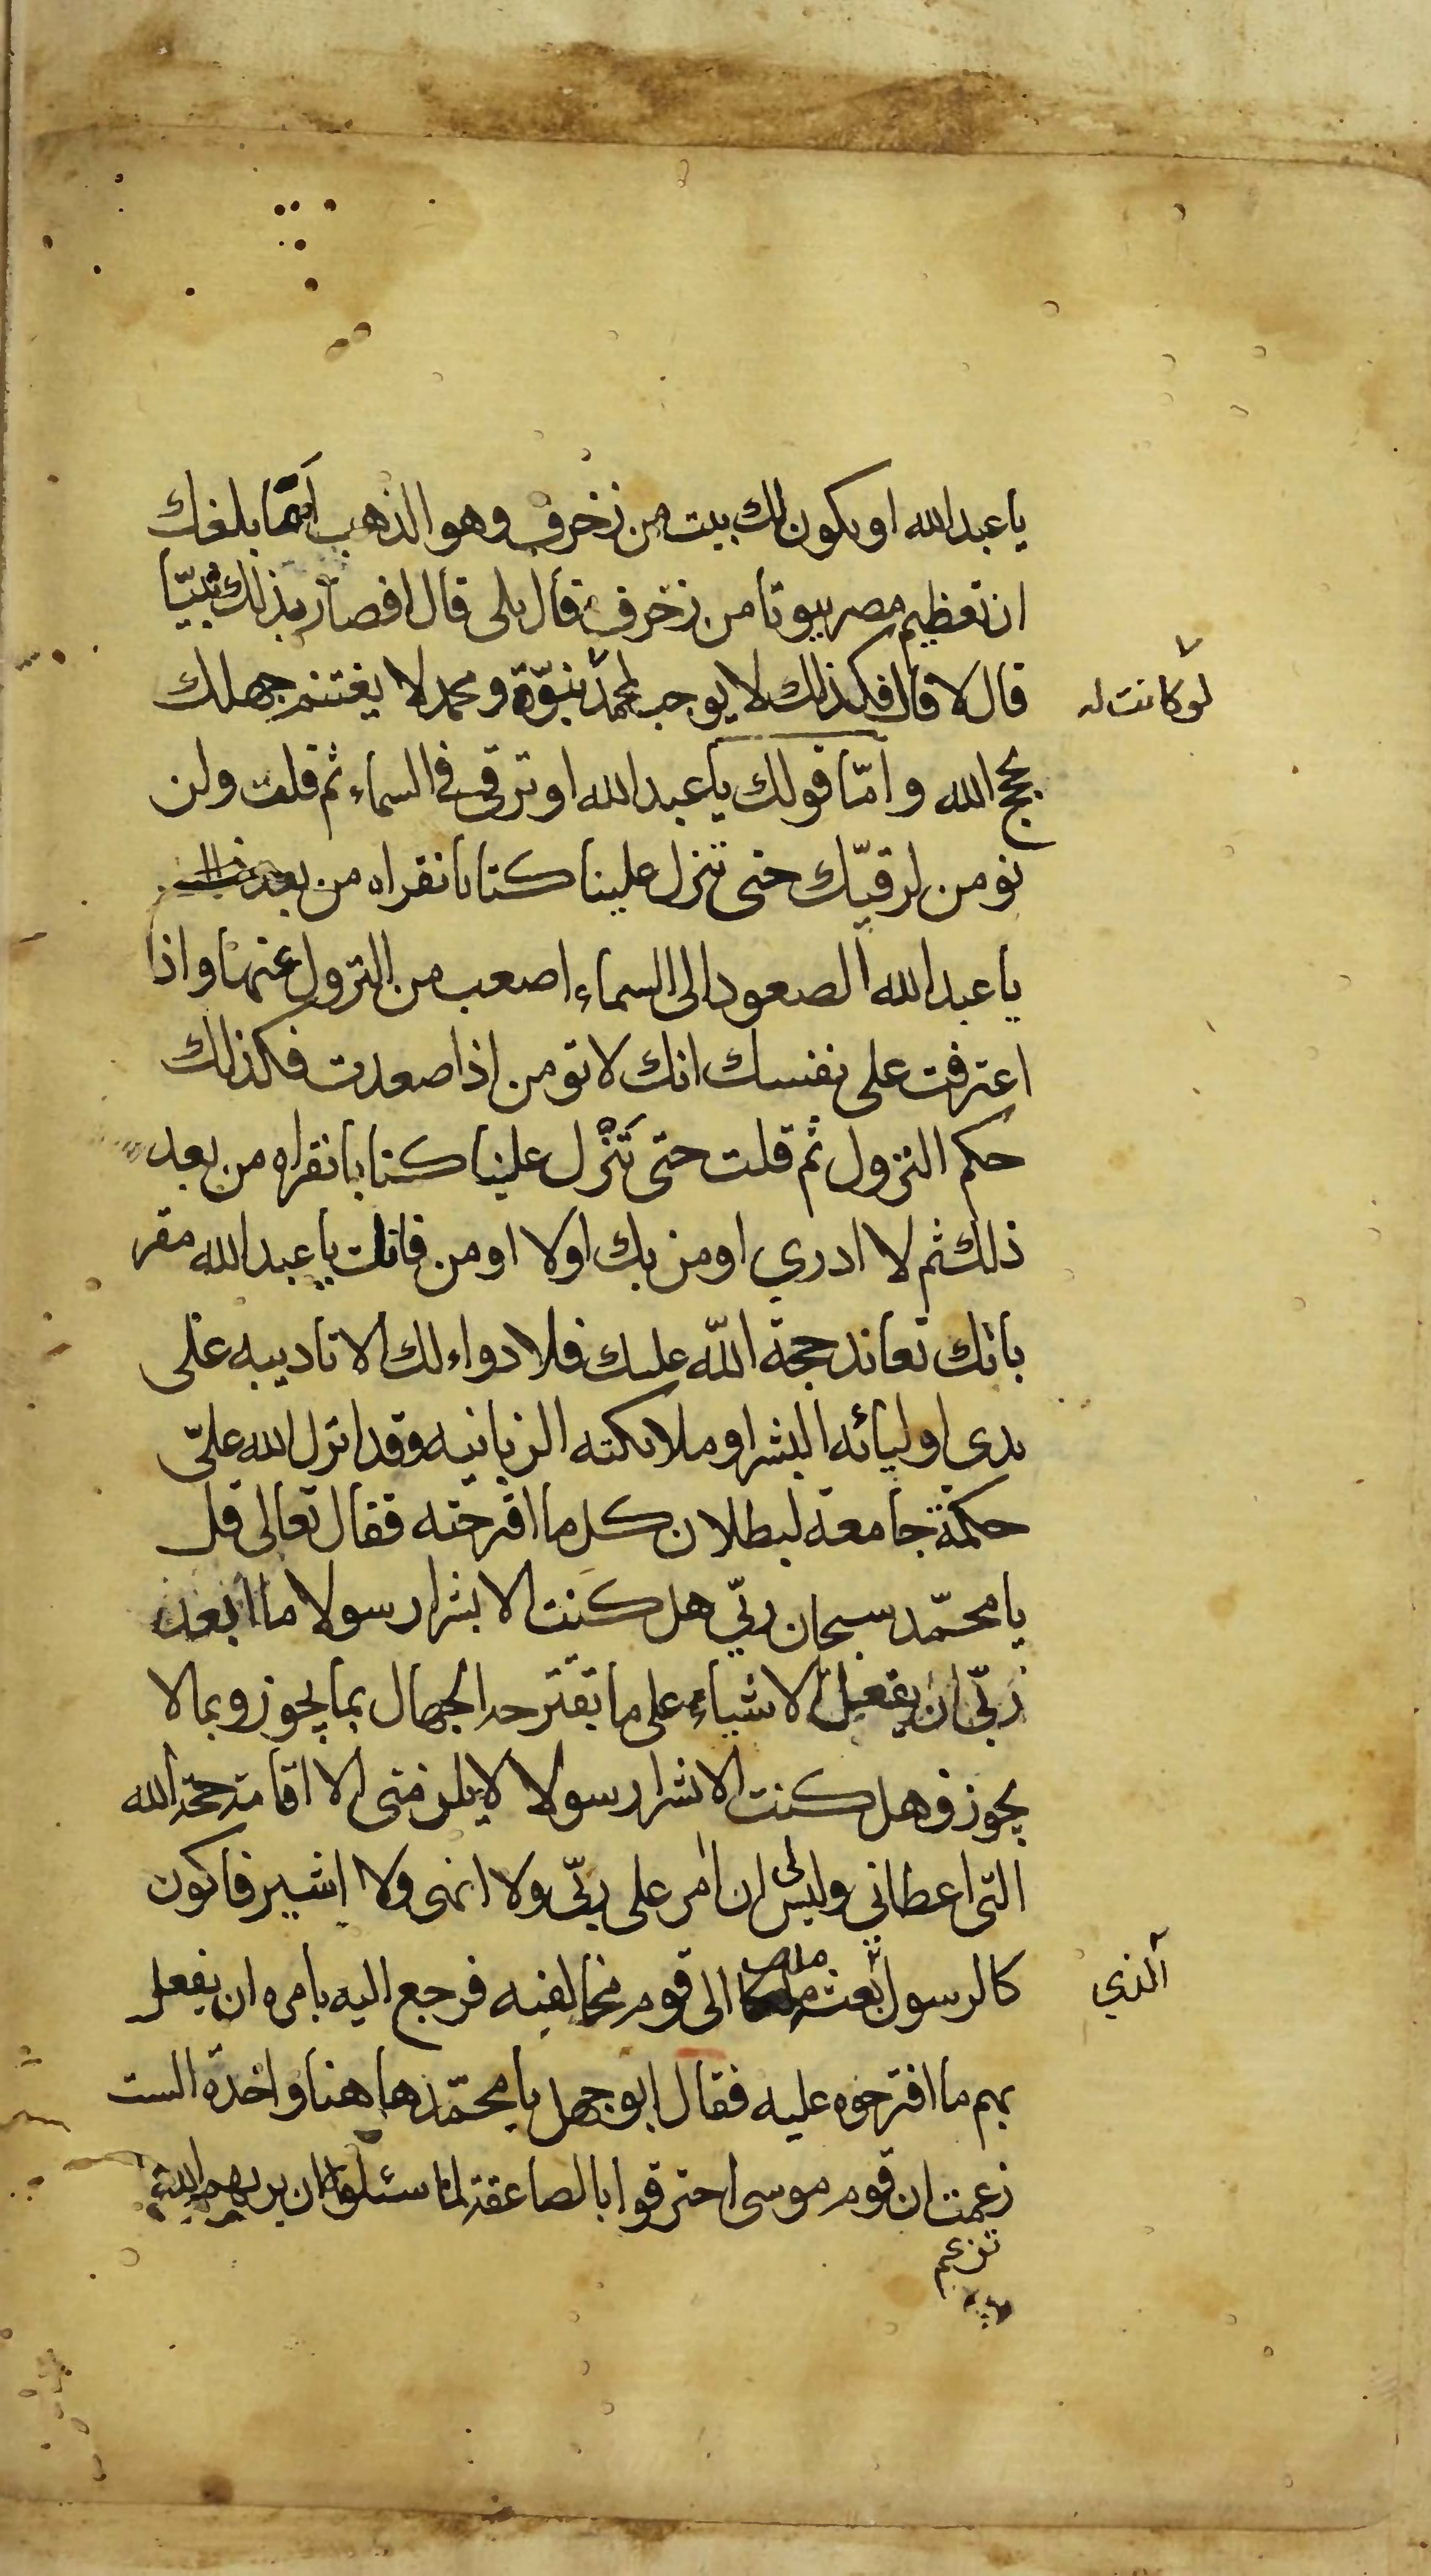 يا عبد الله او يكون لك بيت من زخرف وهو الذهب اما بلغك
ان تعظيم مصر بيوتا من زخرف قال بلى قال افصار بذلك نبيّا
قال لا قال فكذلك لا يوجب لمحمد نبوّة ومحمد لا يغتنم جهلك
لو كانت له
بحجج الله وامّا قولك يا عبد الله او ترقى في السماء ثم قلت ولن
نومن لرقيّك حتى تنزل علينا كتابا نقراه من بعد
يا عبد الله الصعود الى السماء اصعب من النزول عنها واذا
اعترفت على نفسك انك لا تومن اذا صعدت فكذلك
حكم النزول ثم قلت حتى تَنْزل علينا كتابا نقراه من بعد
ذلك ثم لا ادري اومن بك اولا اومن فانت يا عبد الله مقر
بانك تعاند حجة اللّه عليك فلا دواء لك الا تاديبه على
يدي اوليائه البشر او ملائكته الزبانيه وقد انزل الله عليّ
حكمة جامعة لبطلان كل ما اقترحته فقال تعالى قل
يا محمّد سبحان ربّي هل كنت الا بشرا رسولا ما ابعد
ربّي ان يفعل الاشياء على ما تقترحه الجهال بما يجوز وبما لا
يجوز وهل كنت الا بشرا رسولا لا يلزمني الا اقامة حجة الله
التي اعطاني وليس لي ان امر على ربّي ولا انهى ولا اشير فاكون
كالرسول بعثه ملك الى قوم مخالفيه فرجع اليه يامره ان يفعل
الذي
بهم ما اقترحوه عليه فقال ابو جهل يا محمّد هاهنا واحدة الست
زعمت ان قوم موسى احترقوا بالصاعقة لما سئلوه ان يريهم الله
تزعم